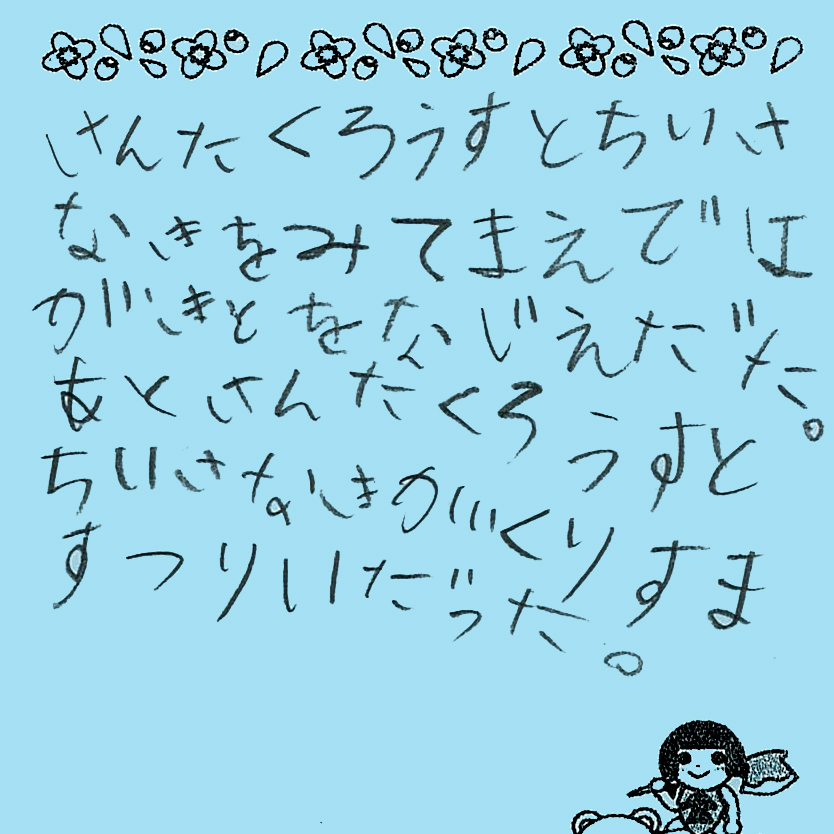 さんたくろうすとちいさ
なきをみてまえでは
がきとをなじえだだた。
あとさんたくろうすと
ちいさなきがくりすま
すつりいだった。